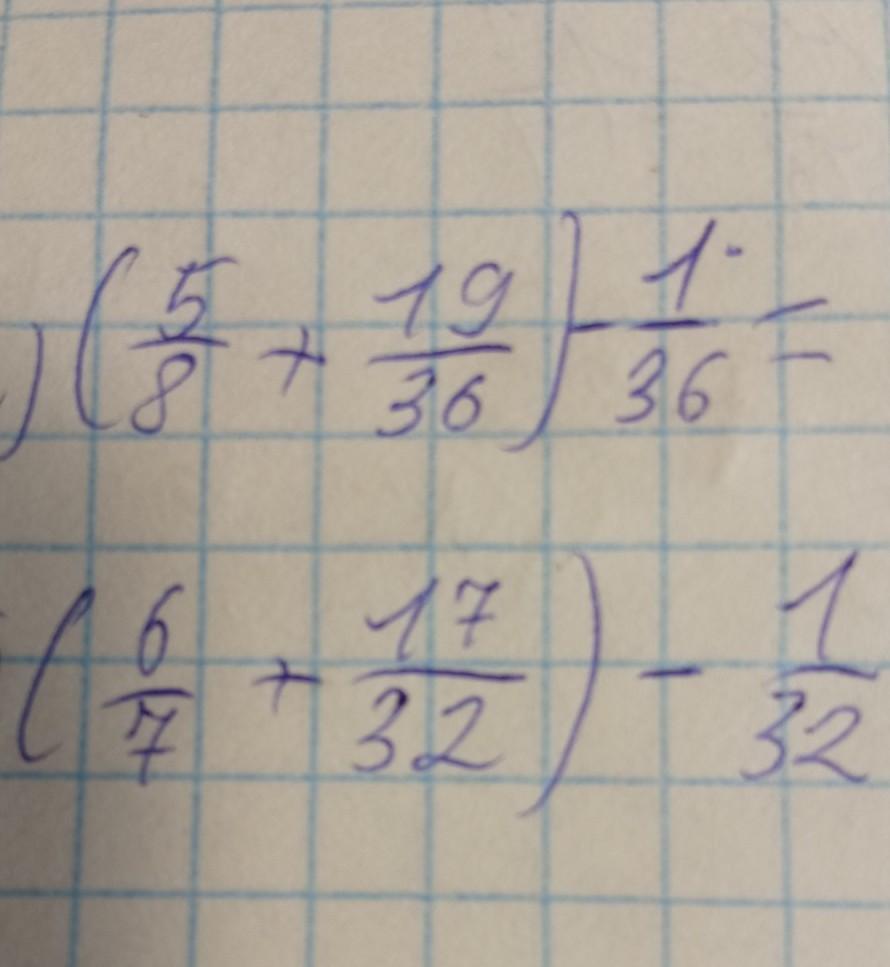 ) (5/8 + 19/36) - 1/36 =
(6/7 + 17/32) - 1/32